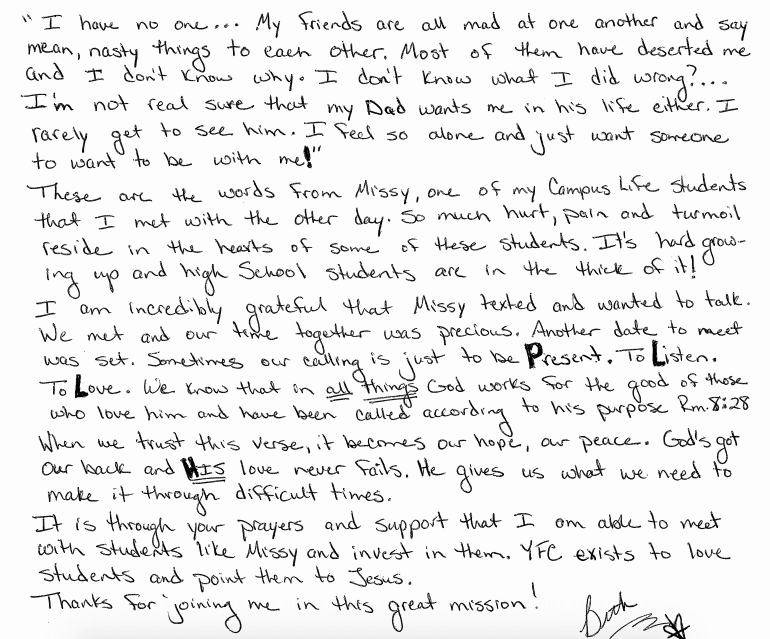 "I have no one... My friends are all mad at one another and say
mean, nasty things to each other. Most of them have deserted me
and I don't know why. I don't know what I did wrong?...
I'm not real sure that my Dad wants me in his life either. I
rarely get to see him. I feel so alone and just want someone
to want to be with me!"
These are the words from Missy, one of my Campus Life students
that I met with the other day. So much hurt, pain and turmoil
reside in the hearts of some of these students. It's hard grow-
ing up and high School students are in the thick of it!
I am incredibly grateful that Missy texted and wanted to talk.
We met and our time together was precious. Another date to meet
was set. Sometimes our calling is just to be Present. To Listen.
To Love. We know that in all things God works for the good of those
who love him and have been called according to his purpose Rm. 8:28
When we trust this verse, it becomes our hope, our peace. God's got
our back and HIS love never fails. He gives us what we need to
make it through difficult times.
It is through your prayers and support that I am able to meet
with students like Missy and invest in them. YFC exists to love
students and point them to Jesus.
Thanks for joining me in this great mission!